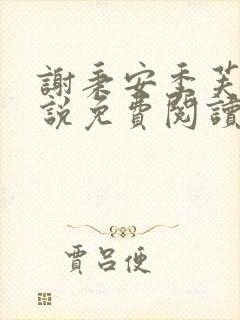 謝秉安季芙
說免費閱讀
賈呂便